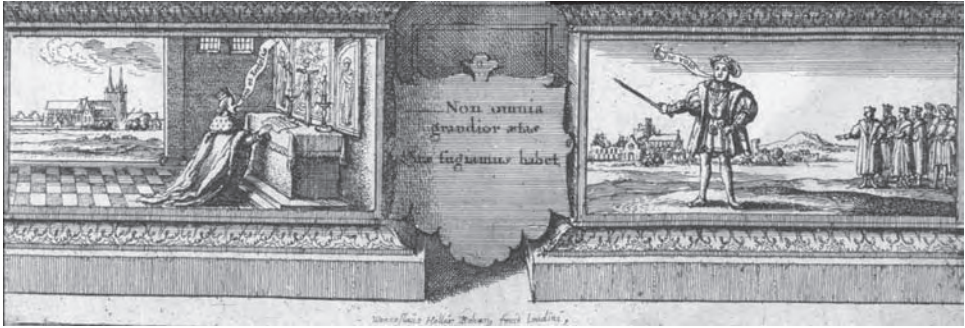 Non omnia
grandior ætas
Quæ fugiamus habet
Wenceslaus Hollar Bohem, fecit Londini,